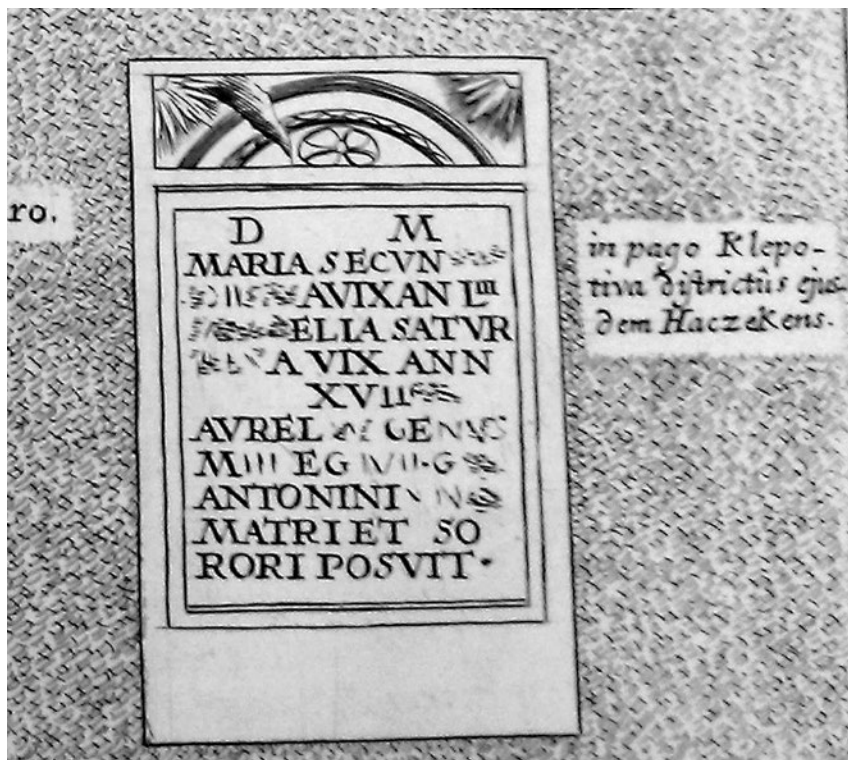 ro.
D M
MARIA SECVN
AVIXAN LIII
ELIA SATVR
A VIX ANN
XVII
AVREL GENVS
M EG
ANTONINI
MATRI ET SO
RORI POSVIT·
in pago Klepo-
tiva districtûs ejus-
dem Haczekens.